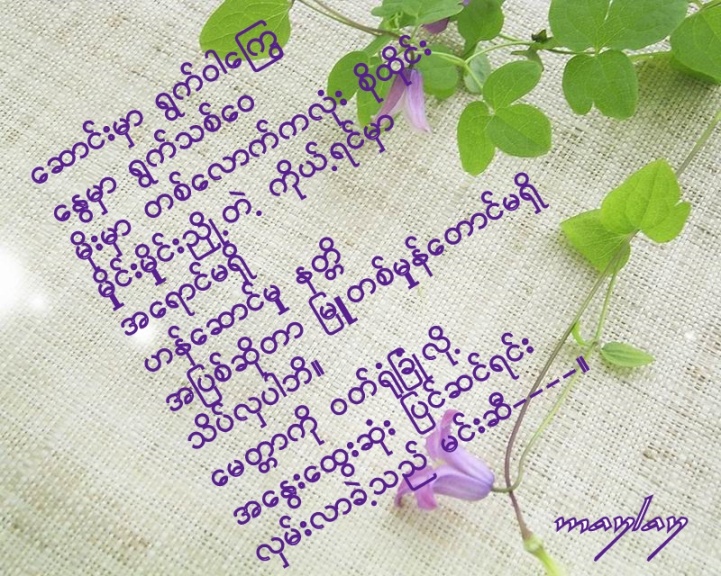 ဆောင်းမှာ ရွက်ဝါကြွေ
နွေမှာ ရွက်သစ်ဝေ
မိုးမှာ တစ်လောက်ကလုံး စိုထိုင်း
မှိုင်းမှိုင်းညို့တဲ့ ကိုယ့်ရင်မှာ
အရောင်မရှိ
ဟန်ဆောင်မှု နတ္တိ
အပြစ်ဆိုတာ မြူတစ်မှုန်တောင်မရှိ
သိပ်လှပါဘိ။
မေတ္တာကို ဝတ်ရုံခြုံလို့
အနွေးထွေးဆုံး ပြင်ဆင်ရင်း
လှမ်းလာခဲ့သည် မင်းဆီ-----။
manlan